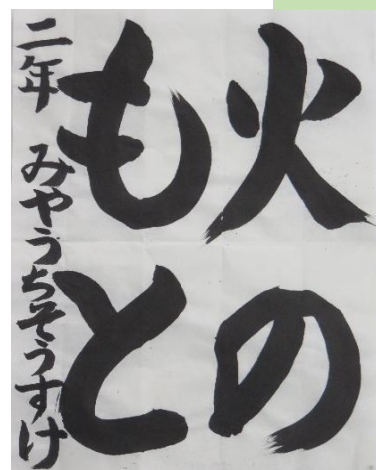 火の
もと
二年 みやうちそうすけ